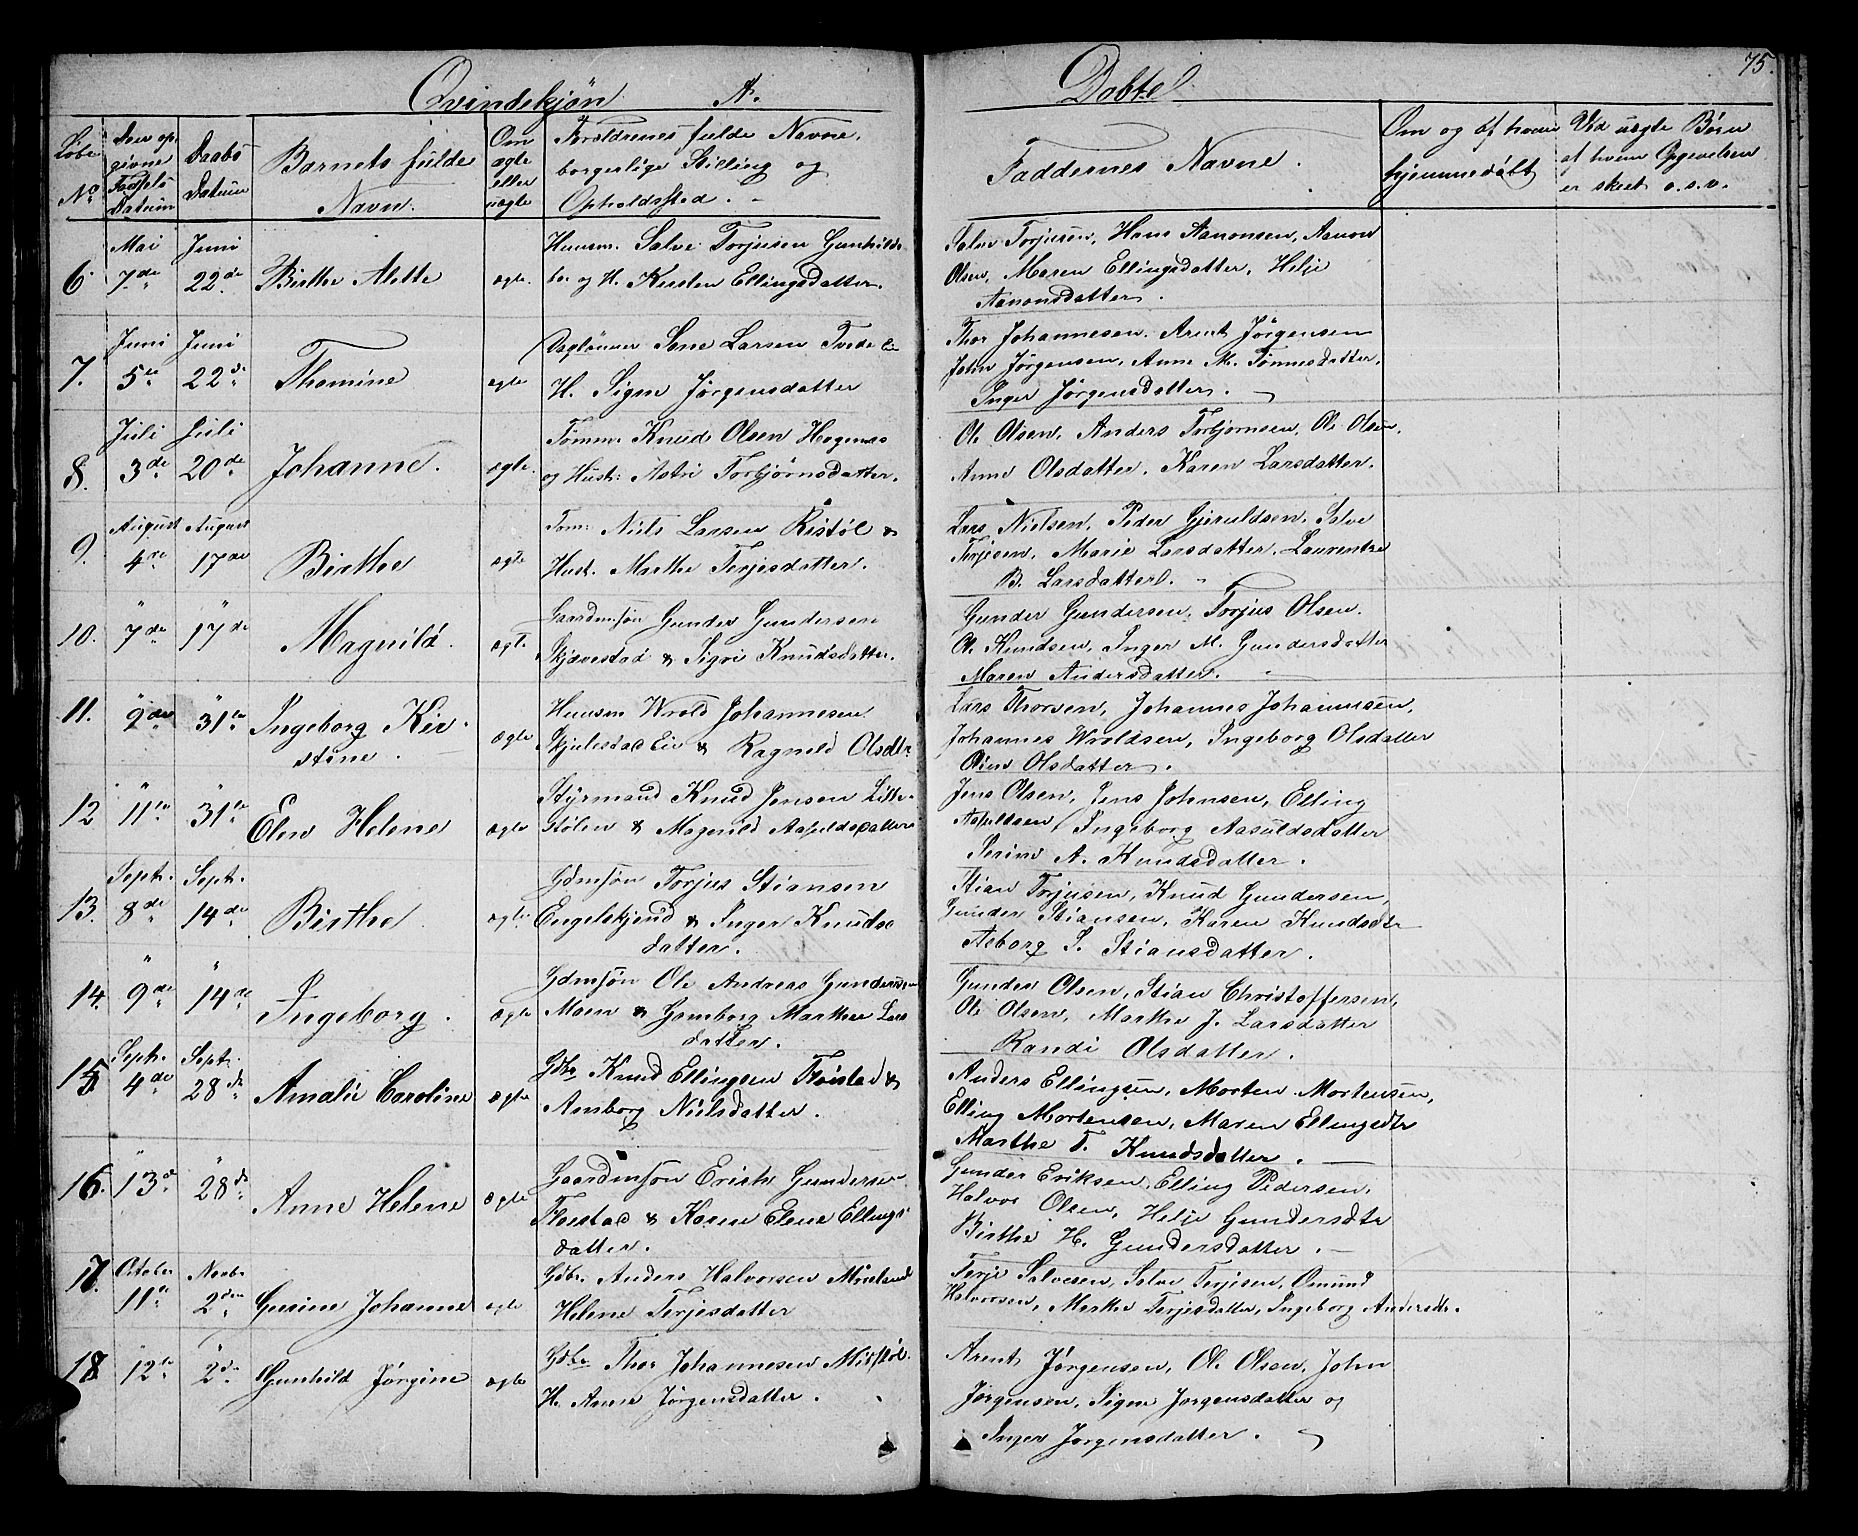 Qvindekjön A. Döbte 75.
Löbe No. | Den opgivne Fødsels Datum | Daabs Datum | Barnets fulde Navn. | Om ægte eller uægte | Forældrenes fulde Navne, borgerlige Stilling og Opholdssted. | Faddernes Navne. | Om og af hvem hjemmedöbt | Ved uægte Börn af hvem Opgivelsen er skeet o.s.v.
6. Mai 7de Juni 22de Birthe Alette ægte. Huusm. Salve Torjusen Gunhilds-
bo. og H. Kirsten Ellingsdatter.
Salve Torjusen, Hans Aanonsen, Aanon
Olsen, Maren Ellingsdatter, Helje
Aanonsdatter.
7. Juni 5te Juni 22de Thomine ægte Daglønner Sone Larsen Tvede Eie
H. Signe Jørgensdatter
Thor Johannesen. Arent Jørgensen
John Jørgensen, Anne M. Tønnesdatter,
Inger Jørgensdatter.
8. Juli 3de Juli 20de Johanne. ægte. Tømm. Knud Olsen
og Hust: Astri Torbjørnsdatter.
Ole Olsen, Anders Torbjørnsen, Ole Olsen,
Anne Olsdatter. Karen Larsdatter.
9. August 4de August 17de Birthe ægte Tøm: Niels Larsen Ristöl &
Hust. Marthe Terjesdatter.
Lars Nielsen, Peder Gjeruldsen, Salve
Terjesen, Marie Larsdatter, Laurentze
B. Larsdatter.
10. " 7de " 17de Magnild. ægte Gaardmsön Gunder Gundersen
Skjævestad & Sigri Knudsdatter.
Gunder Gundersen, Torjus Olsen.
Ole Knudsen, Inger M. Gundersdatter
Maren Andersdatter.
11. " 9de " 31te Ingeborg Kir-
stine. ægte Huusm Wrold Johannesen
Skjulestad Eie & Ragnild Olsdtr
Lars Thorsen, Johannes Johannesen,
Johannes Wroldsen, Ingeborg Olsdatter
Olsdatter.
12 " 11te " 31te Elen Helene ægte Styrmand Knud Jensen Lille-
Stölen & Magnild Aasuldsdatter
Jens Olsen, Jens Johnsen, Elling
Aasuldsen, Ingeborg Aasuldsdatter
Serine A. Knudsdatter.
13. Septr. 8de Septr. 14de Birthe ægte. Gdmsön Torjus Stiansen
Engelskjend & Inger Knuds
datter.
Stian Torjusen, Knud Gundersen,
Gunder Stiansen, Karen Knudsdtr
Asborg S. Stiansdatter.
14. " 9de " 14de Ingeborg. ægte Gdmsön Ole Andreas Gundersen
Moen & Gomborg Marthea Lars
datter.
Gunder Olsen, Stian Christoffersen,
Ole Olsen, Marthe J. Larsdatter
Randi Olsdatter.
15 Septr. 4de Septr. 28de Amalie Caroline ægte Gdbr Knud Ellingsen Fløistad &
Amborg Nielsdatter.
Anders Ellingsen, Morten Mortensen,
Elling Mortensen, Maren Ellingsdtr
Marthe T. Knudsdatter.
16. " 13de " 28de Anne Helene ægte Gaardmsön Erich Gundersen
Floistad & Karen Elene Ellings
datter.
Gunder Eriksen, Elling Pedersen,
Halvor Olsen, Helje Gundersdtr
Birthe H. Gundersdatter.
17. October 11te Novbr 2den Gurine Johanne ægte Gdbr. Anders Halvorsen Möieland
Helene Terjesdatter
Terje Salvesen, Salve Terjesen, Omund
Halvorsen, Marthe Terjesdatter, Ingeborg Andersdtr.
18 " 12te " 2de Gunhild Jørgine ægte Gdbr Thor Johannesen Midtstöl.
H. Anne Jørgensdatter.
Arent Jørgensen, Ole Olsen, John
Jørgensen, Signe Jørgensdatter og
Inger Jørgensdatter.